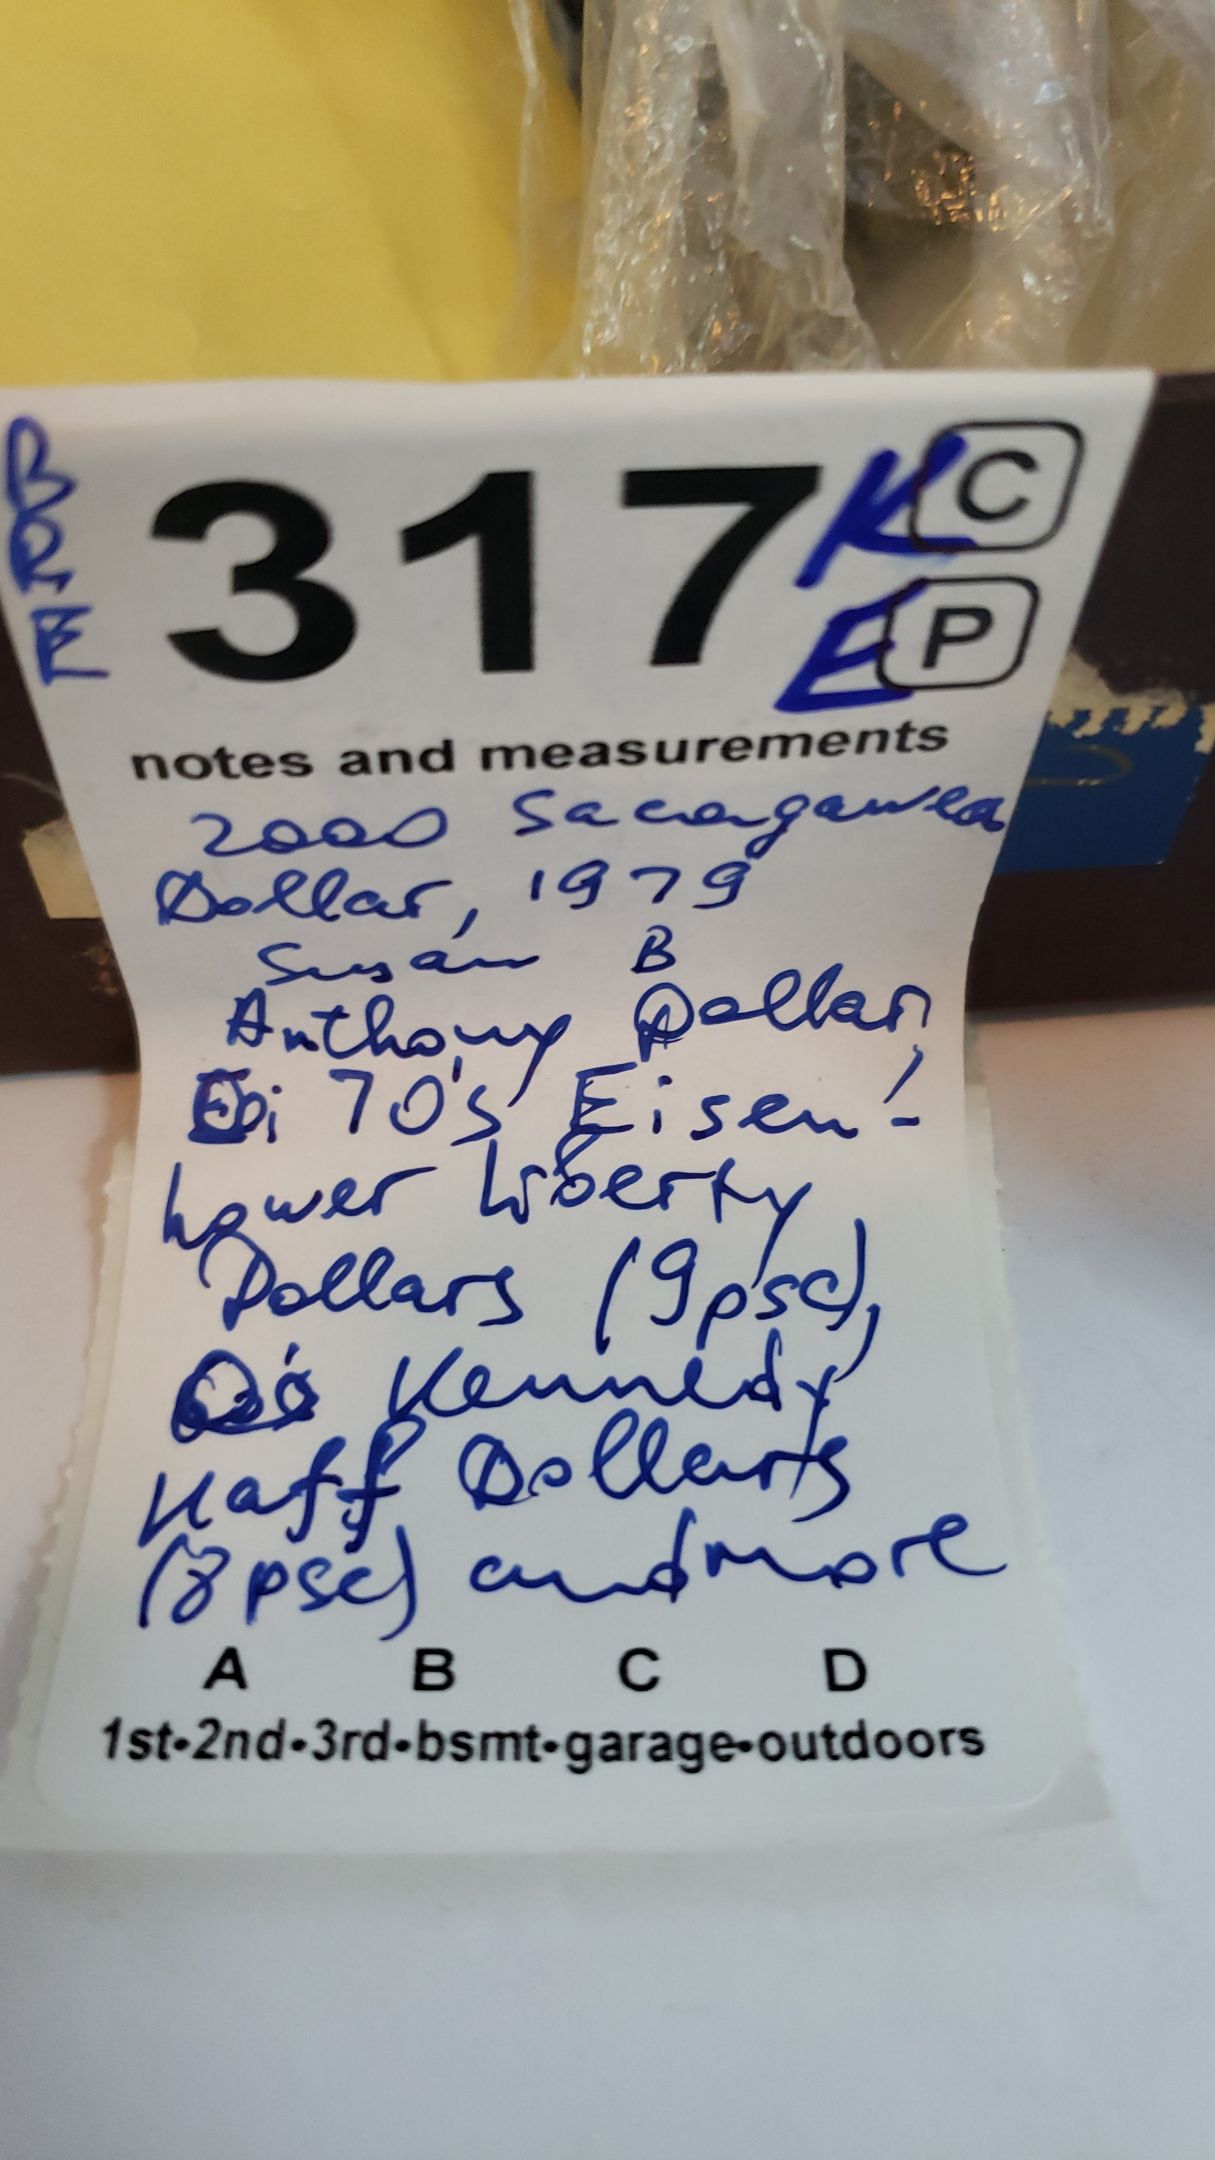 317 K C
E P
notes and measurements
2000 Sacagawea
Dollar, 1979
Susan B
Anthony Dollar,
70's Eisen-
hower Liberty
Dollars (9psc),
Kennedy
Haff Dollars
(8psc) and more
A B C D
1st•2nd•3rd•bsmt•garage•outdoors